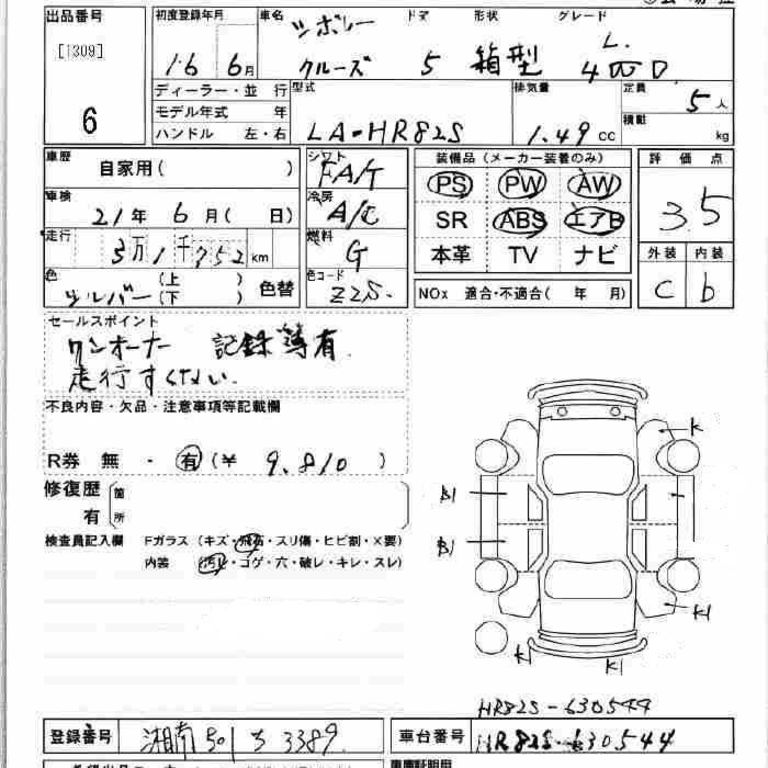 出品番号 初度登録年月 車名 シボレー ドア 形状 グレード
[1309] 16 6月 クルーズ 5 箱型 L. 4WD
6 ディーラー・並 行 型式 排気量 定員 5人
モデル年式 年 積載 kg
ハンドル 左・右 LA-HR82S 1.49 cc
車歴 自家用( ) シフト FA/T 装備品(メーカー装着のみ) 評価点
車検 21年 6月( 日) 冷房 A/C PS PW AW 3.5
走行 3万1千752km 燃料 G SR ABS エアB 外装 内装
色 シルバー (上 ) (下 ) 色替 色コード Z2S. 本革 TV ナビ C b
NOx 適合・不適合( 年 月)
セールスポイント
ワンオーナー 記録簿有.
走行すくない.
不良内容・欠品・注意事項等記載欄
R券 無 ・ 有 (¥ 9.810 )
修復歴 箇
有 所
検査員記入欄 Fガラス (キズ・飛石・スリ傷・ヒビ割・X要)
内装 (汚レ・コゲ・穴・破レ・キレ・スレ)
K
B1
B1
K1
K1 K1
HR82S-630544
登録番号 湘南 501 3389 車台番号 HR82S-630544